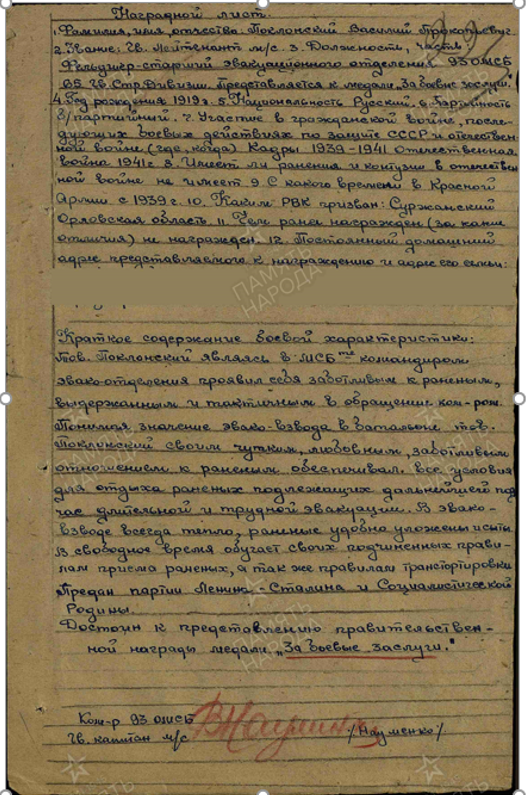 Наградной лист.
1. Фамилия, имя, отчество Поклонский Василий Прокопьевич
2. Звание: Гв. Лейтенант м/с. 3. Должность, часть
Фельдшер-старший эвакуационного отделения 93 ОМСБ
65 Гв. Стр. Дивизии. Представляется к медали „За боевые заслуги."
4. Год рождения 1919 г. 5. Национальность Русский. 6. Партийность
б/партийный. 7. Участие в гражданской войне, после-
дующих боевых действиях по защите СССР и отечествен-
ной войне (где, когда) Кадры 1939-1941 Отечественная
война 1941 г. 8. Имеет ли ранения и контузии в отечествен
ной войне не имеет 9. С какого времени в Красной
Армии с 1939 г. 10. Каким РВК призван: Суржанский
Орловская область 11. Чем ранее награжден (за какие
отличия) не награжден 12. Постоянный домашний
адрес представляемого к награждению и адрес его семьи:
Краткое содержание боевой характеристики:
Тов. Поклонский являясь в МСБте командиром
эвако-отделения проявил себя заботливым к раненым,
выдержанным и тактичным в обращение
Понимая значение эвако-взвода в батальоне тов.
Поклонский своим чутким, любовным, заботливым
отношением к раненым обеспечивал все условия
для отдыха раненых подлежащих дальнейшей под
час длительной и трудной эвакуации. В эвако-
взводе всегда тепло, раненые удобно уложены и сыты
В свободное время обучает своих подчиненных прави-
лам приема раненых, а так же правилам транспортировки
Предан партии Ленина-Сталина и Социалистической
Родины.
Достоин к представлению правительствен-
ной награды медали „За боевые заслуги."
Ком-р 93 ОМСБ
Гв. капитан м/с /Науменко/
ПАМЯТЬ
НАРОДА